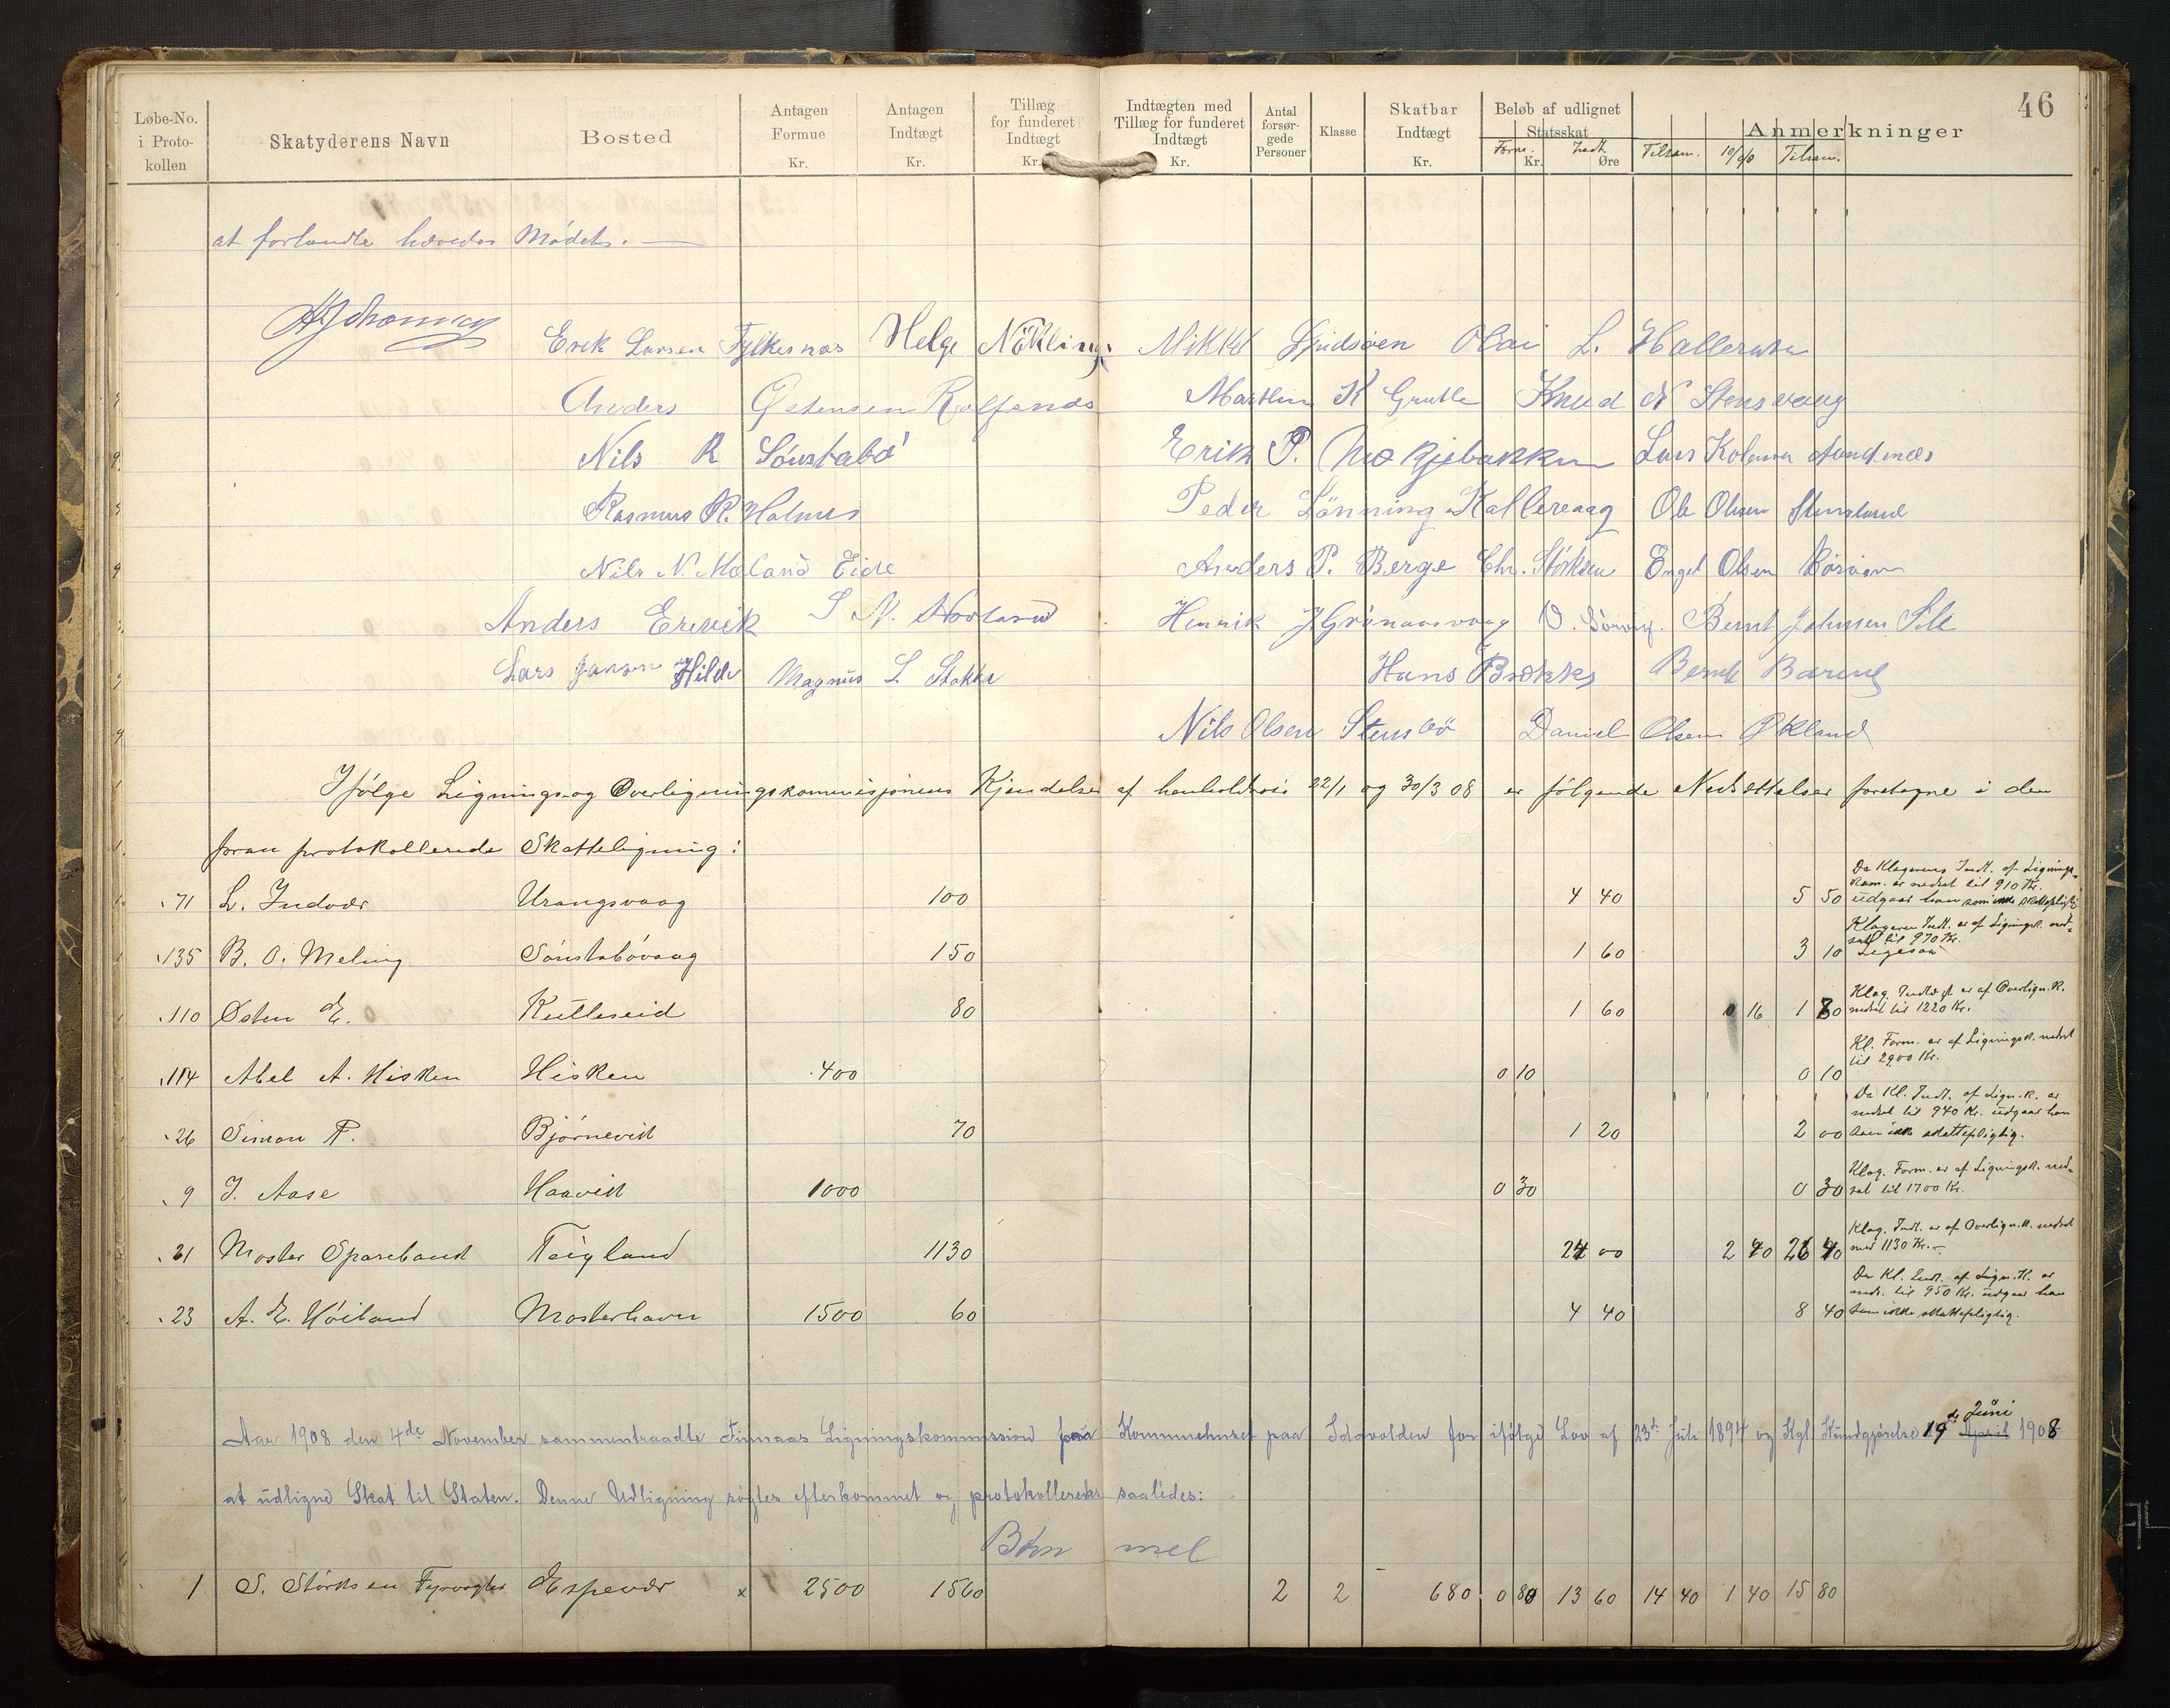 46
Løbe-No. i Proto-kollen | Skatyderens Navn | Bosted | Antagen Formue Kr. | Antagen Indtægt Kr. | Tillæg for funderet Indtægt Kr. | Indtægten med Tillæg for funderet Indtægt Kr. | Antal forsør-gede Personer | Klasse | Skatbar Indtægt Kr. | Beløb af udlignet Statsskat Kr. Øre | Anmerkninger
Form. Indt. Tilsam. 10/00 Tilsam.
at forhandle hævedes Mødet. —
Erik Larsen Fylkesnæs Helge Nökling Mikkel Olai L.
Anders Østensen Martin K Grutle Knud N Stensvaag
Nils R Sønstabö Erik P. Lars
Rasmus R. Holmes Peder Lönning Kallevaag Ole Olsen Stensland
Nils N. Mæland Eide Anders P. Berge Chr. Störksen Engel Olsen
Anders Erevik S N. Hovland Henrik J Grönaasvaag Bernt Johnsen
Lars Jansen Hilde Magnus L. Stokka Hans Brekke Bernt
Nils Olsen Stensbö Daniel Olsen Økland
Ifölge Lignings- og Overligningskommisjonens Kjendelser af henholdsvis 22/1 og 30/3 08 er fölgende Nedsættelser foretagne i den
foran protokollerede Skatteligning:
71 L. Indvær Urangsvaag 100 4 40 5 50 Da Klagerens Indt. af Lignings-kom. er nedsat til 910 Kr. udgaar han som ikke skattepligtig
135 B. O. Meling Sönstabövaag 150 1 60 3 10 Klagerens Indt. er af Ligningsk. ned-sat til 970 Kr. Ligesaa
110 Østen E. Kulleseid 80 1 60 0 16 1 80 Klag. Indtægt er af Overlign. K. nedsat til 1220 Kr.
114 Abel A. Hisken Hisken 400 0 10 0 10 Kl. Form. er af Ligningsk. nedsat til 2900 Kr.
26 Simon P. Björnevik 70 1 20 2 00 Da Kl. Indt. af Lign. K. er nedsat til 940 Kr. udgaar han som ikke skattepligtig.
9 J. Aase Haavik 1000 0 30 0 30 Klag. Form. er af Ligningsk. ned-sat til 1700 Kr.
21 Moster Sparebank Teigland 1130 24 00 2 40 26 40 Klag. Indt. er af Overlign. K. nedsat med 1130 Kr. —
23 A. E. Höiland Mosterhavn 1500 60 4 40 8 40 Da Kl. Indt. af Lign. K. er neds. til 950 Kr. udgaar han som ikke skattepligtig.
Aar 1908 den 4de November sammentraadte Finnaas Ligningskommission paa Kommunehuset paa Idavolden for ifölge Lov af 23de Juli 1894 og Kgl. Kundgjørelse 19de April Juni 1908
at udligne Skat til Staten. Denne Udligning søgtes efterkommet og protokolleredes saaledes:
Bömmel
1 S. Störksen Fyrvogter Espevær x 2500 1560 2 2 680 0 80 13 60 14 40 1 40 15 80